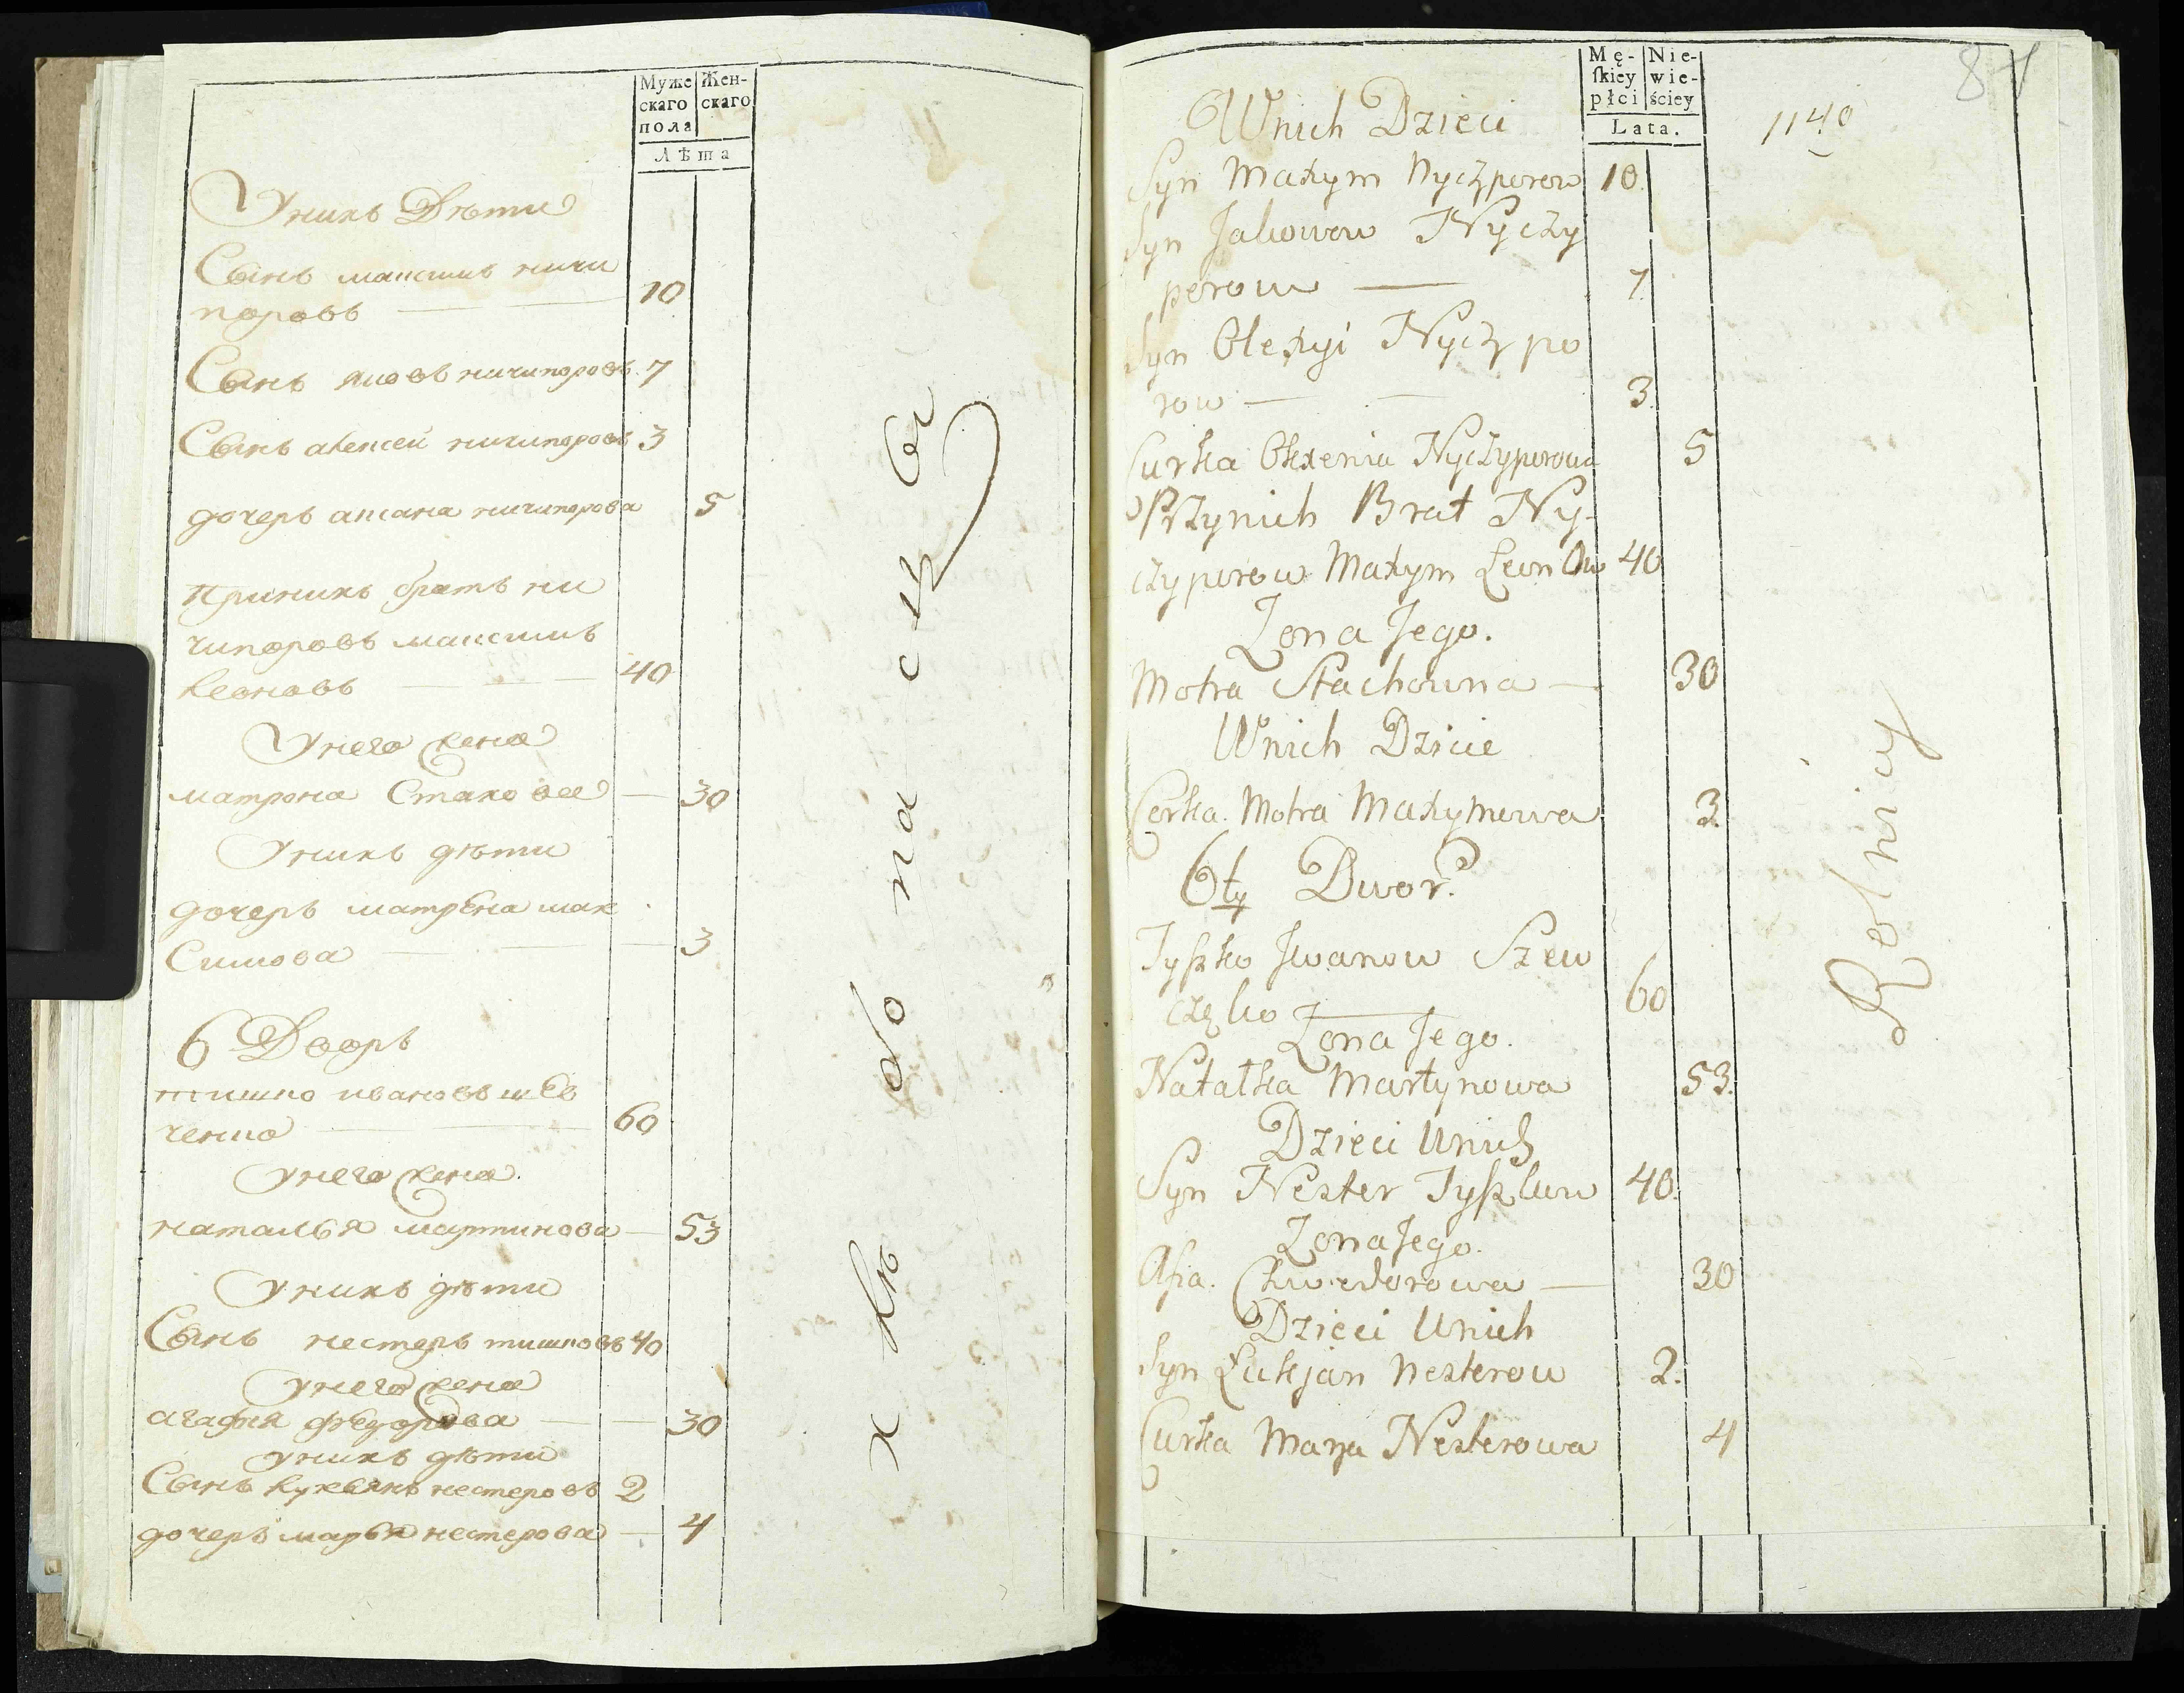 Муже Жен-
скаго скаго
пола
Лѣта
Унихъ Дѣти
Сынъ максимъ ничи
поровъ 10
Сынъ яковъ ничипоровъ 7
Сынъ алексей ничипоровъ 3
дочерь аксана ничипорова 5
принихъ братъ ни
чипоровъ максимъ
леоновъ 40
Унего жена
матрона Стахова 30
Унихъ дѣти
дочерь матрена мак
симова 3
6 Дворъ
тишко ивановъ шев
ченко 60
унего жена.
наталья мартинова 53
Унихъ дѣти
Сынъ нестеръ тишковъ 40
унего жена
агафия федорова 30
унихъ дѣти
Сынъ лукьянъ нестеровъ 2
дочерь марья нестерова 4
хлѣбопа
Mę- Nie-
ſkiey wie-
płci ściey
Lata.
87
1140
Unich Dzieci
Syn Maxym Nyczporow 10.
Syn Jakowow Nyczy
porow 7.
Syn Olexyi Nyczypo
row 3.
Curka Okxenia Nyczyporowa 5
Przynich Brat Ny-
czyporow Maxym Leonow 40
Zona Jego.
Motra Stachowna 30
Unich Dzicie
Corka. Motra Maxymowa 3.
6ty Dwor.
Tyſzko Jwanow Szew
częko 60
Zona Jego.
Natalka Martynowa 53.
Dzieci Unich
Syn Nester Tyſzkow 40.
Zona Jego.
Afia. Chwedorowa 30
Dzieci Unich
Syn Łukjan Nesterow 2.
Curka Marya Nesterowa 4
Rolnicy